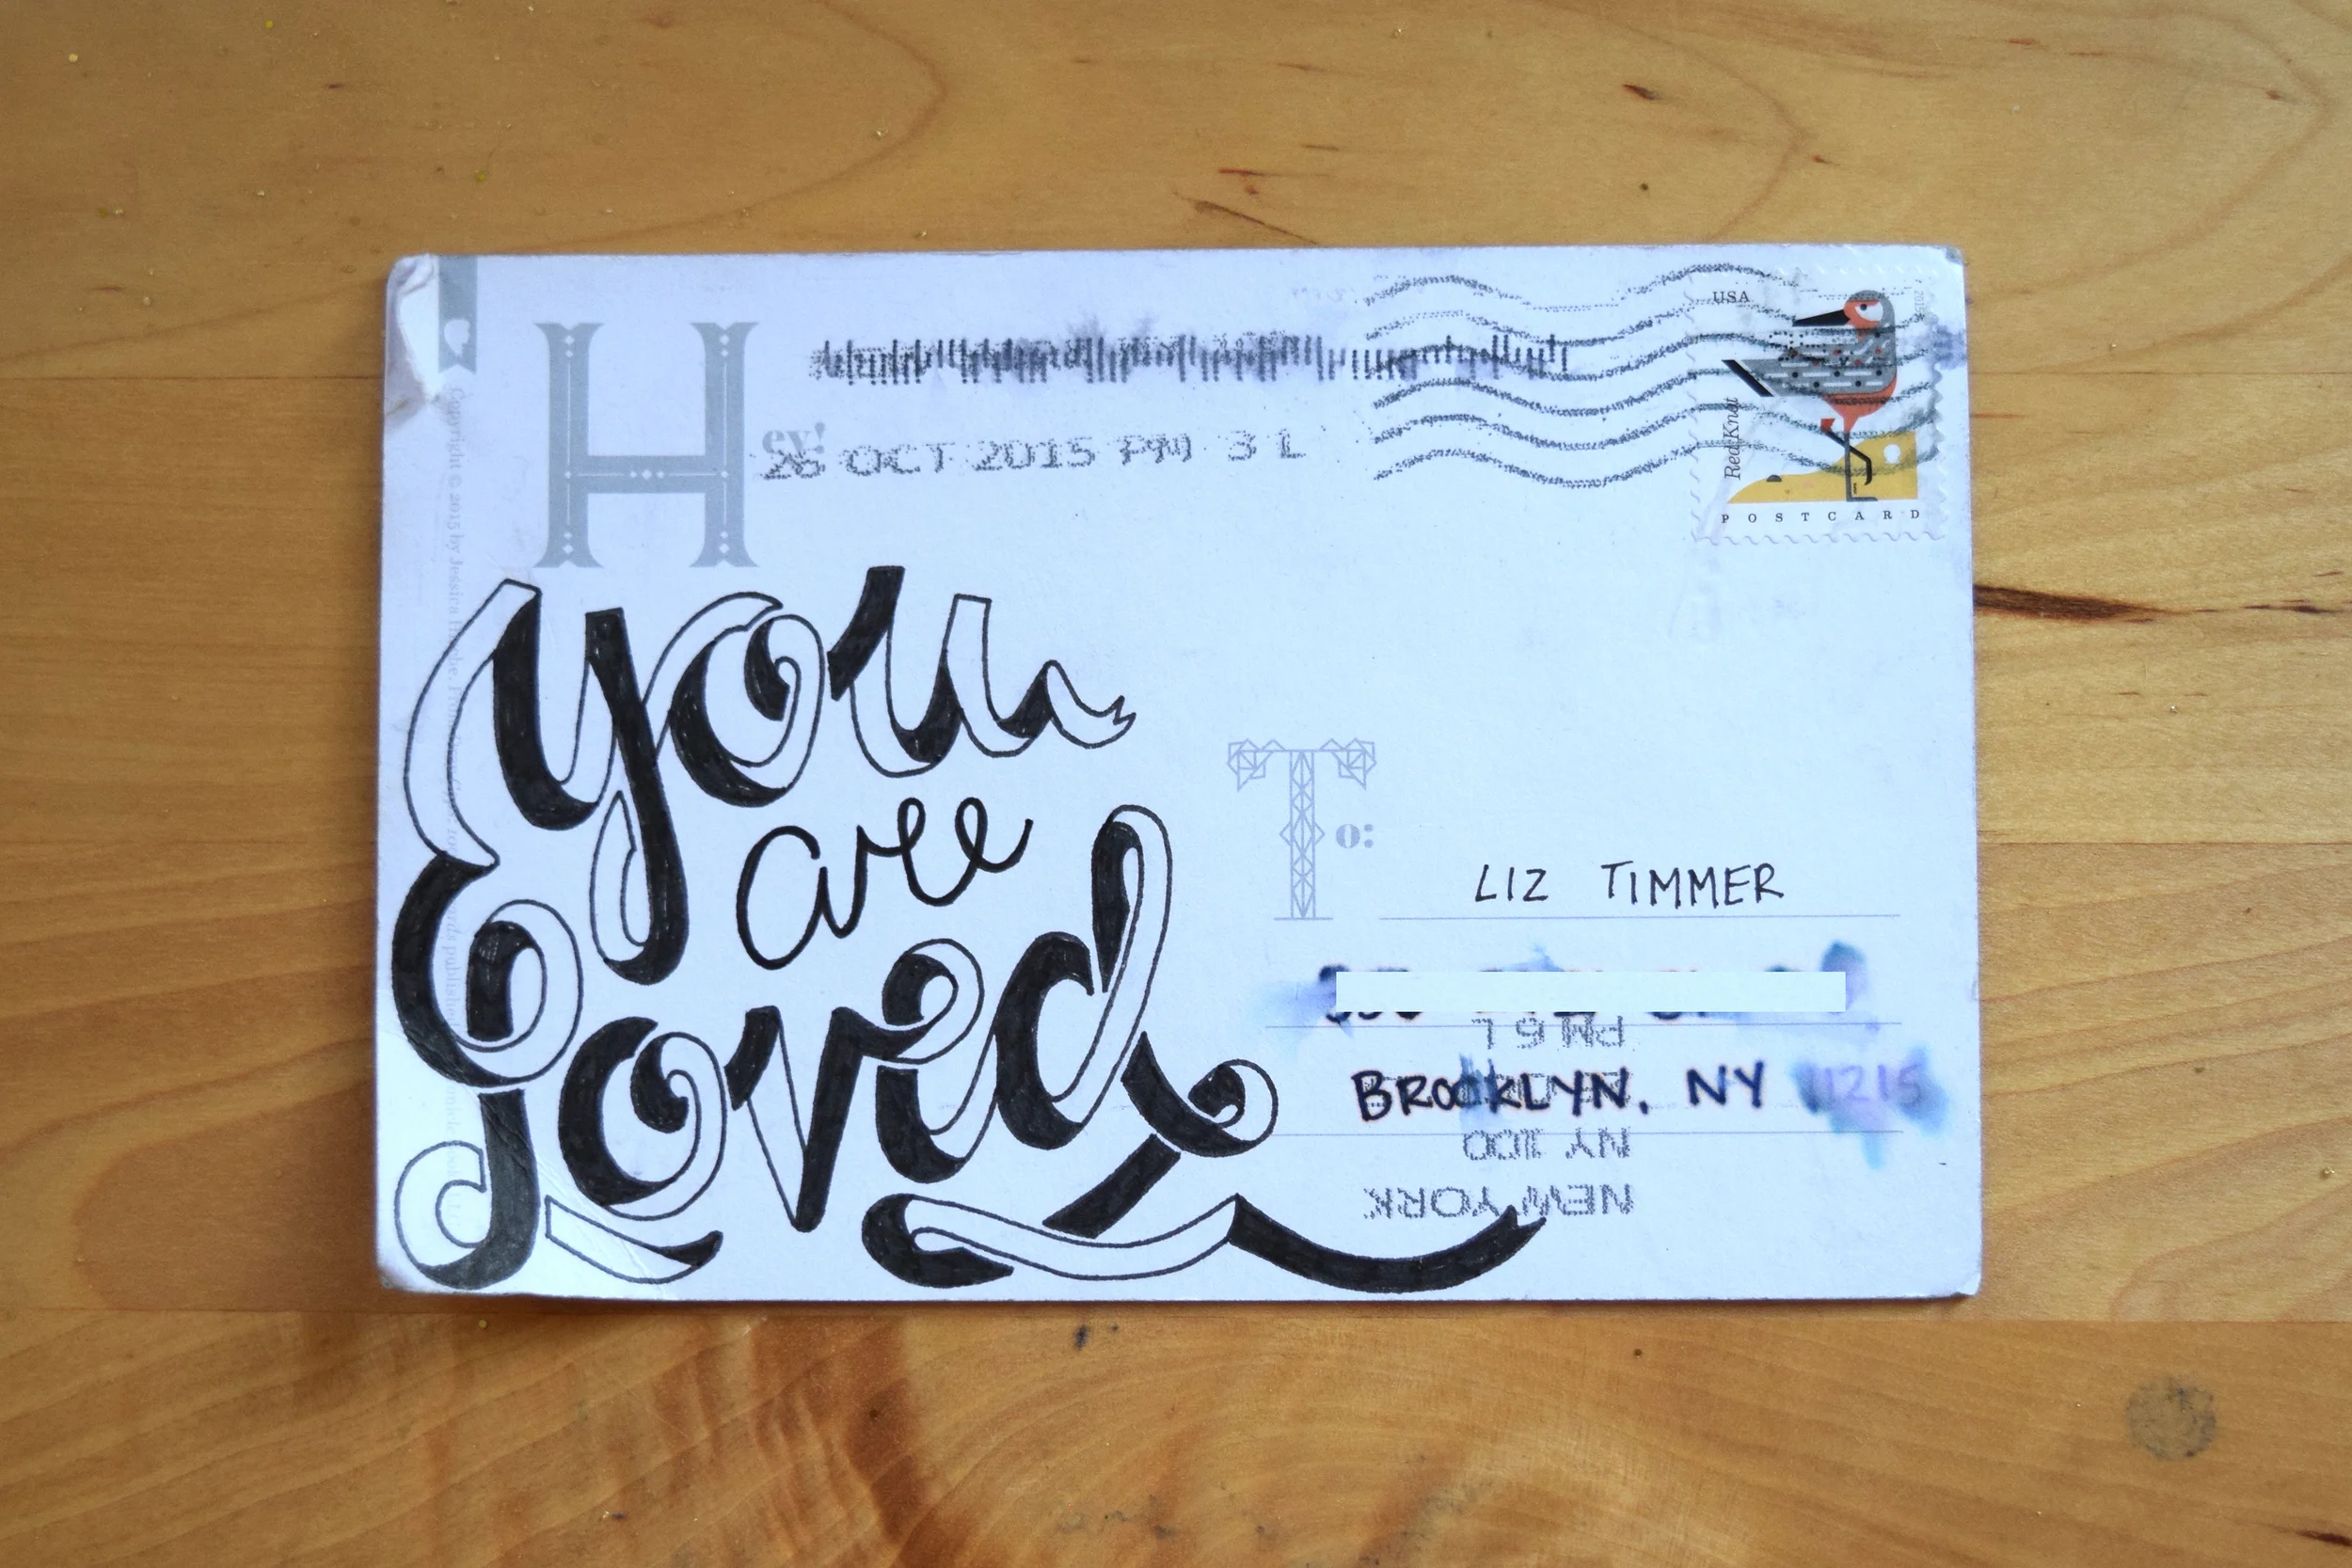 USA
Hey!
26 OCT 2015 PM 3 L
Red Knot
POSTCARD
You
are
Loved
To:
LIZ TIMMER
PM 6 L
BROOKLYN, NY 11215
NY 100
NEW YORK
Copyright © 2015 by Jessica